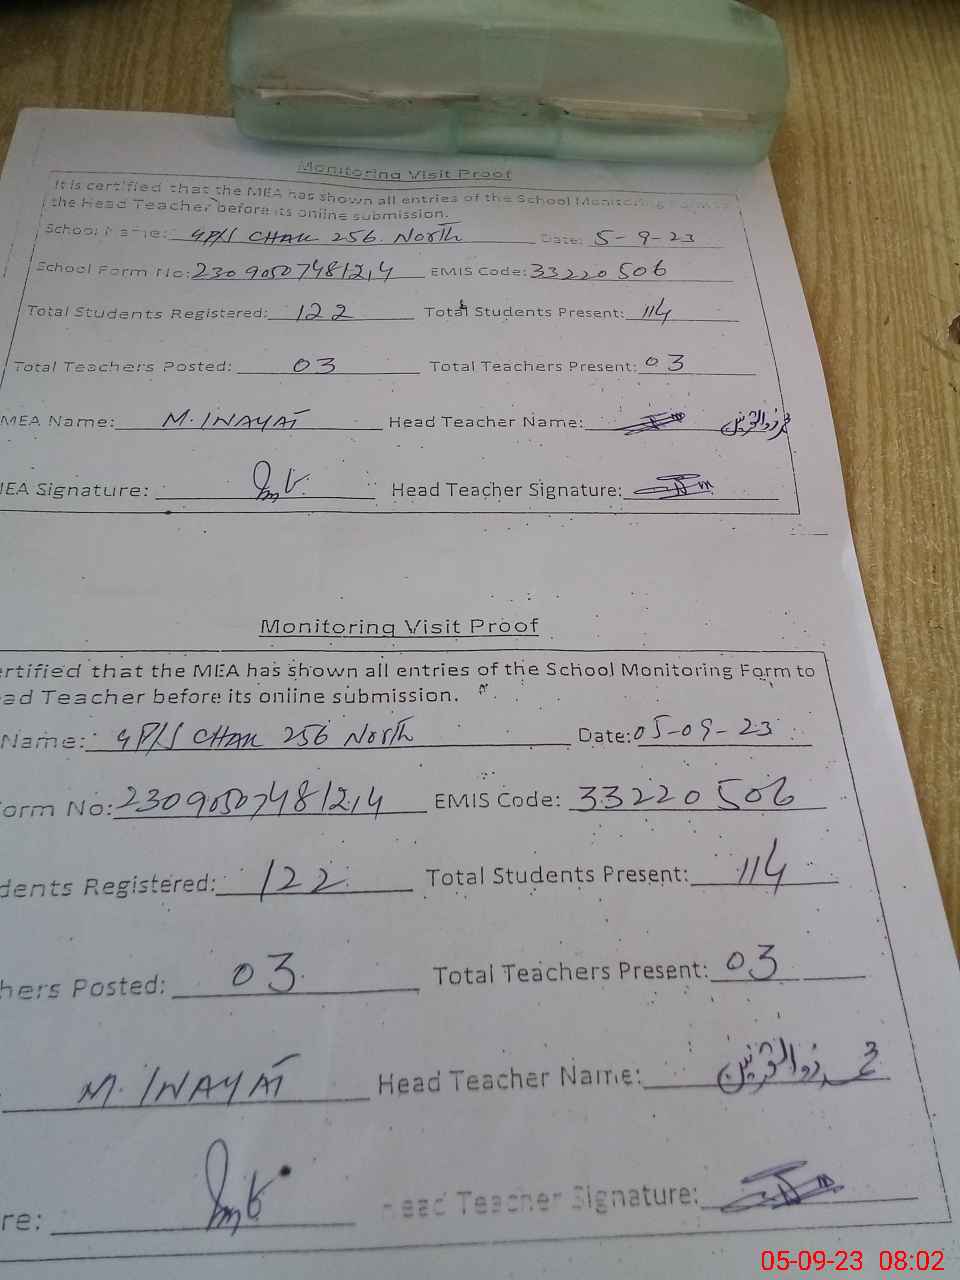 Monitoring Visit Proof
It is certified that the MEA has shown all entries of the School Monitoring Form to
the Head Teacher before its online submission.
School Name: GP/S CHAK 256 North Date: 5-9-23
School Form No: 230905074812,4 EMIS Code: 33220506
Total Students Registered: 122 Total Students Present: 114
Total Teachers Posted: 03 Total Teachers Present: 03
MEA Name: M. INAYAT Head Teacher Name: محمد ذوالقرنین
MEA Signature: Head Teacher Signature:
Monitoring Visit Proof
ertified that the MEA has shown all entries of the School Monitoring Form to
ad Teacher before its online submission.
Name: GP/S CHAK 256 North Date: 05-09-23
orm No: 230905074812,4 EMIS Code: 33220506
dents Registered: 122 Total Students Present: 114
hers Posted: 03 Total Teachers Present: 03
M. INAYAT Head Teacher Name: محمد ذوالقرنین
re: Head Teacher Signature:
05-09-23 08:02